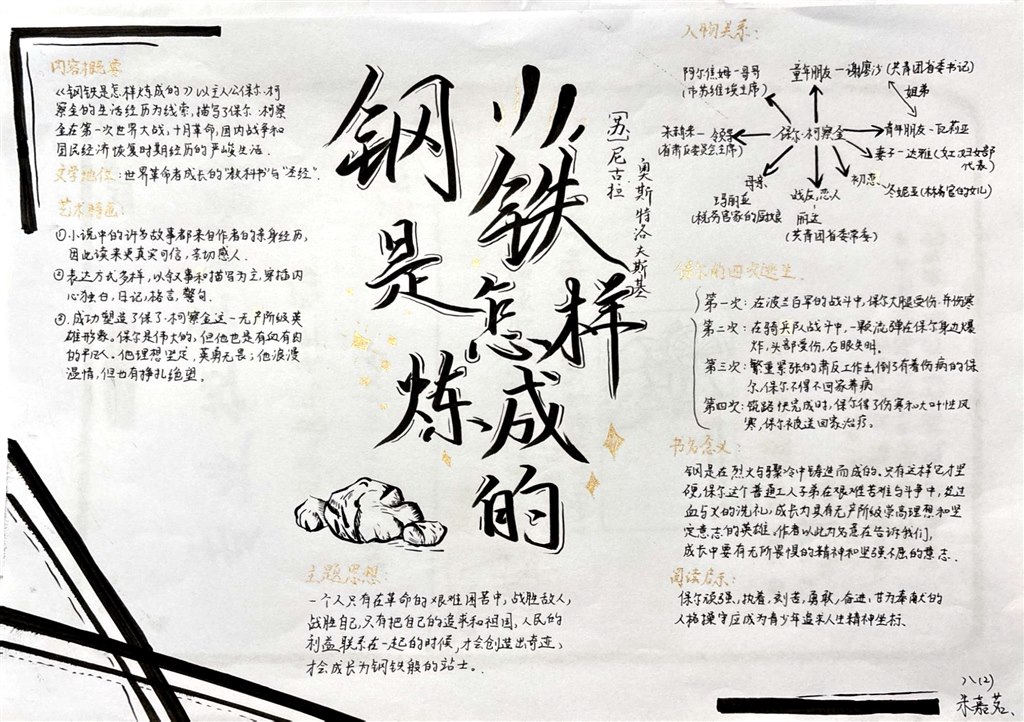 内容概要
《钢铁是怎样炼成的》以主人公保尔·柯
察金的生活经历为线索,描写了保尔·柯察
金在第一次世界大战,十月革命,国内战争和
国民经济恢复时期经历的严峻生活.
文学地位:世界革命者成长的"教科书"与"圣经".
艺术特色:
①小说中的许多故事都来自作者的亲身经历,
因此读来更真实可信,亲切感人.
②表达方式多样,以叙事和描写为主,穿插内
心独白,日记,格言,警句.
③成功塑造了保尔·柯察金这一无产阶级英
雄形象。保尔是伟大的,但他也是有血有肉
的凡人。他理想坚定,英勇无畏;他浪漫
温情,但也有挣扎绝望。
钢铁
是怎样
炼成的
[苏]尼古拉
奥斯特洛夫斯基
主题思想:
一个人只有在革命的艰难困苦中,战胜敌人,
战胜自己,只有把自己的追求和祖国,人民的
利益联系在一起的时候,才会创造出奇迹,
才会成长为钢铁般的战士.
人物关系:
阿尔焦姆一哥哥
(市苏维埃主席)
童年朋友一谢廖沙(共青团省委书记)
姐弟
朱赫来一领导
(省肃反委员会主席)
保尔·柯察金
青年朋友一瓦莉亚
妻子一达雅(女工妇女部
代表)
母亲
玛丽亚
(税务官家的厨娘)
战友,恋人
丽达
(共青团省委常委)
初恋
冬妮亚(林务官的女儿)
保尔的四次逃生
第一次:在波兰白军的战斗中,保尔大腿受伤,并伤寒
第二次:在骑兵队战斗中,一颗流弹在保尔身边爆
炸,头部受伤,右眼失明。
第三次:繁重紧张的肃反工作击倒了有着伤病的保
尔,保尔不得不回家养病
第四次:筑路快完成时,保尔得了伤寒和大叶性风
寒,保尔被送回家治疗。
书名含义:
钢是在烈火与骤冷中铸造而成的。只有这样它才坚
硬,保尔这个普通工人子弟在艰难苦难与斗争中,经过
血与火的洗礼,成长为具有无产阶级崇高理想和坚
定意志的英雄,作者以此为名意在告诉我们,
成长中要有无所畏惧的精神和坚强不屈的意志.
阅读启示:
保尔顽强,执着,刻苦,勇敢,奋进,甘为奉献的
人格操守应成为青少年追求人生精神坐标.
八(2)
朱嘉茗、